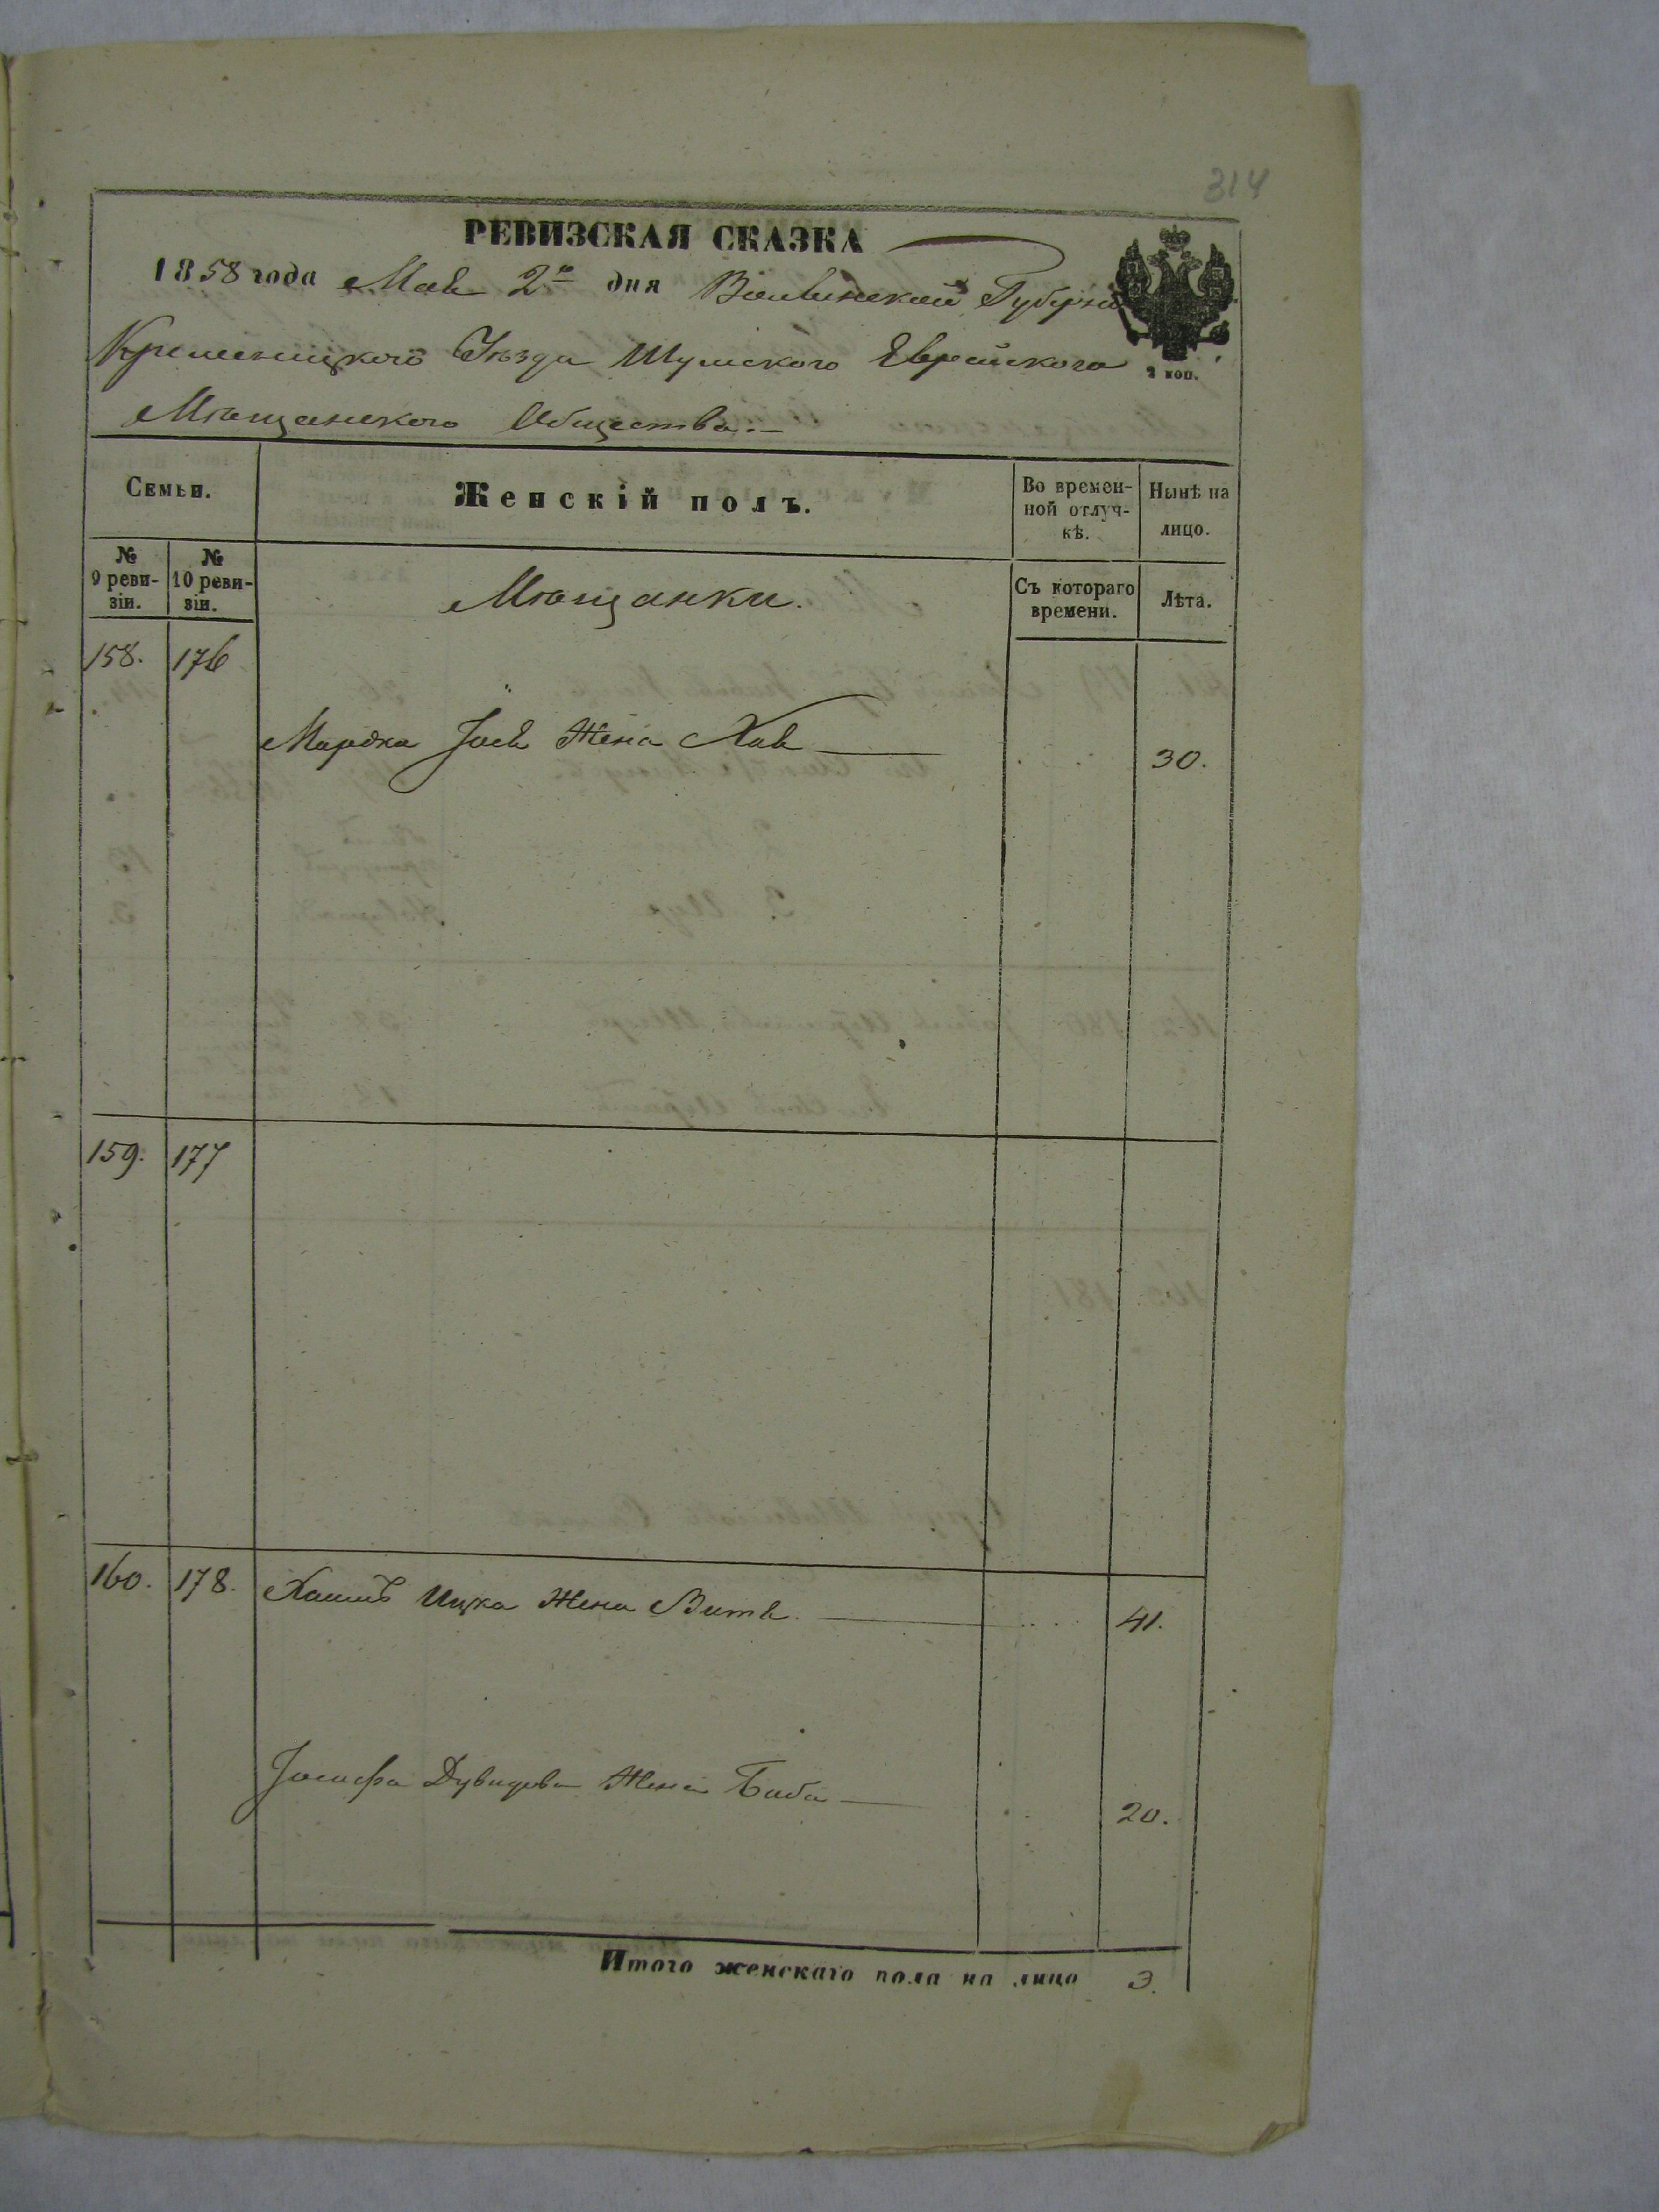 314
РЕВИЗСКАЯ СКАЗКА
1858 года Мая 2го дня Волынской Губерніи
Кременецкого Уѣзда Шумского Еврейского
2 коп.
Мѣщанского Общества.
Семьи.
Женскій полъ.
Во времен-
ной отлуч-
кѣ.
Нынѣ на
лицо.
№
9 реви-
зіи.
№
10 реви-
зіи.
Мѣщанки.
Съ котораго
времени.
Лѣта.
158. 176
Мордка Жена Хая 30.
159. 177
160. 178. Ицка Жена Витя 41.
Іосифа Дувидова Жена Баба 20.
Итого женскаго пола на лицо 3.